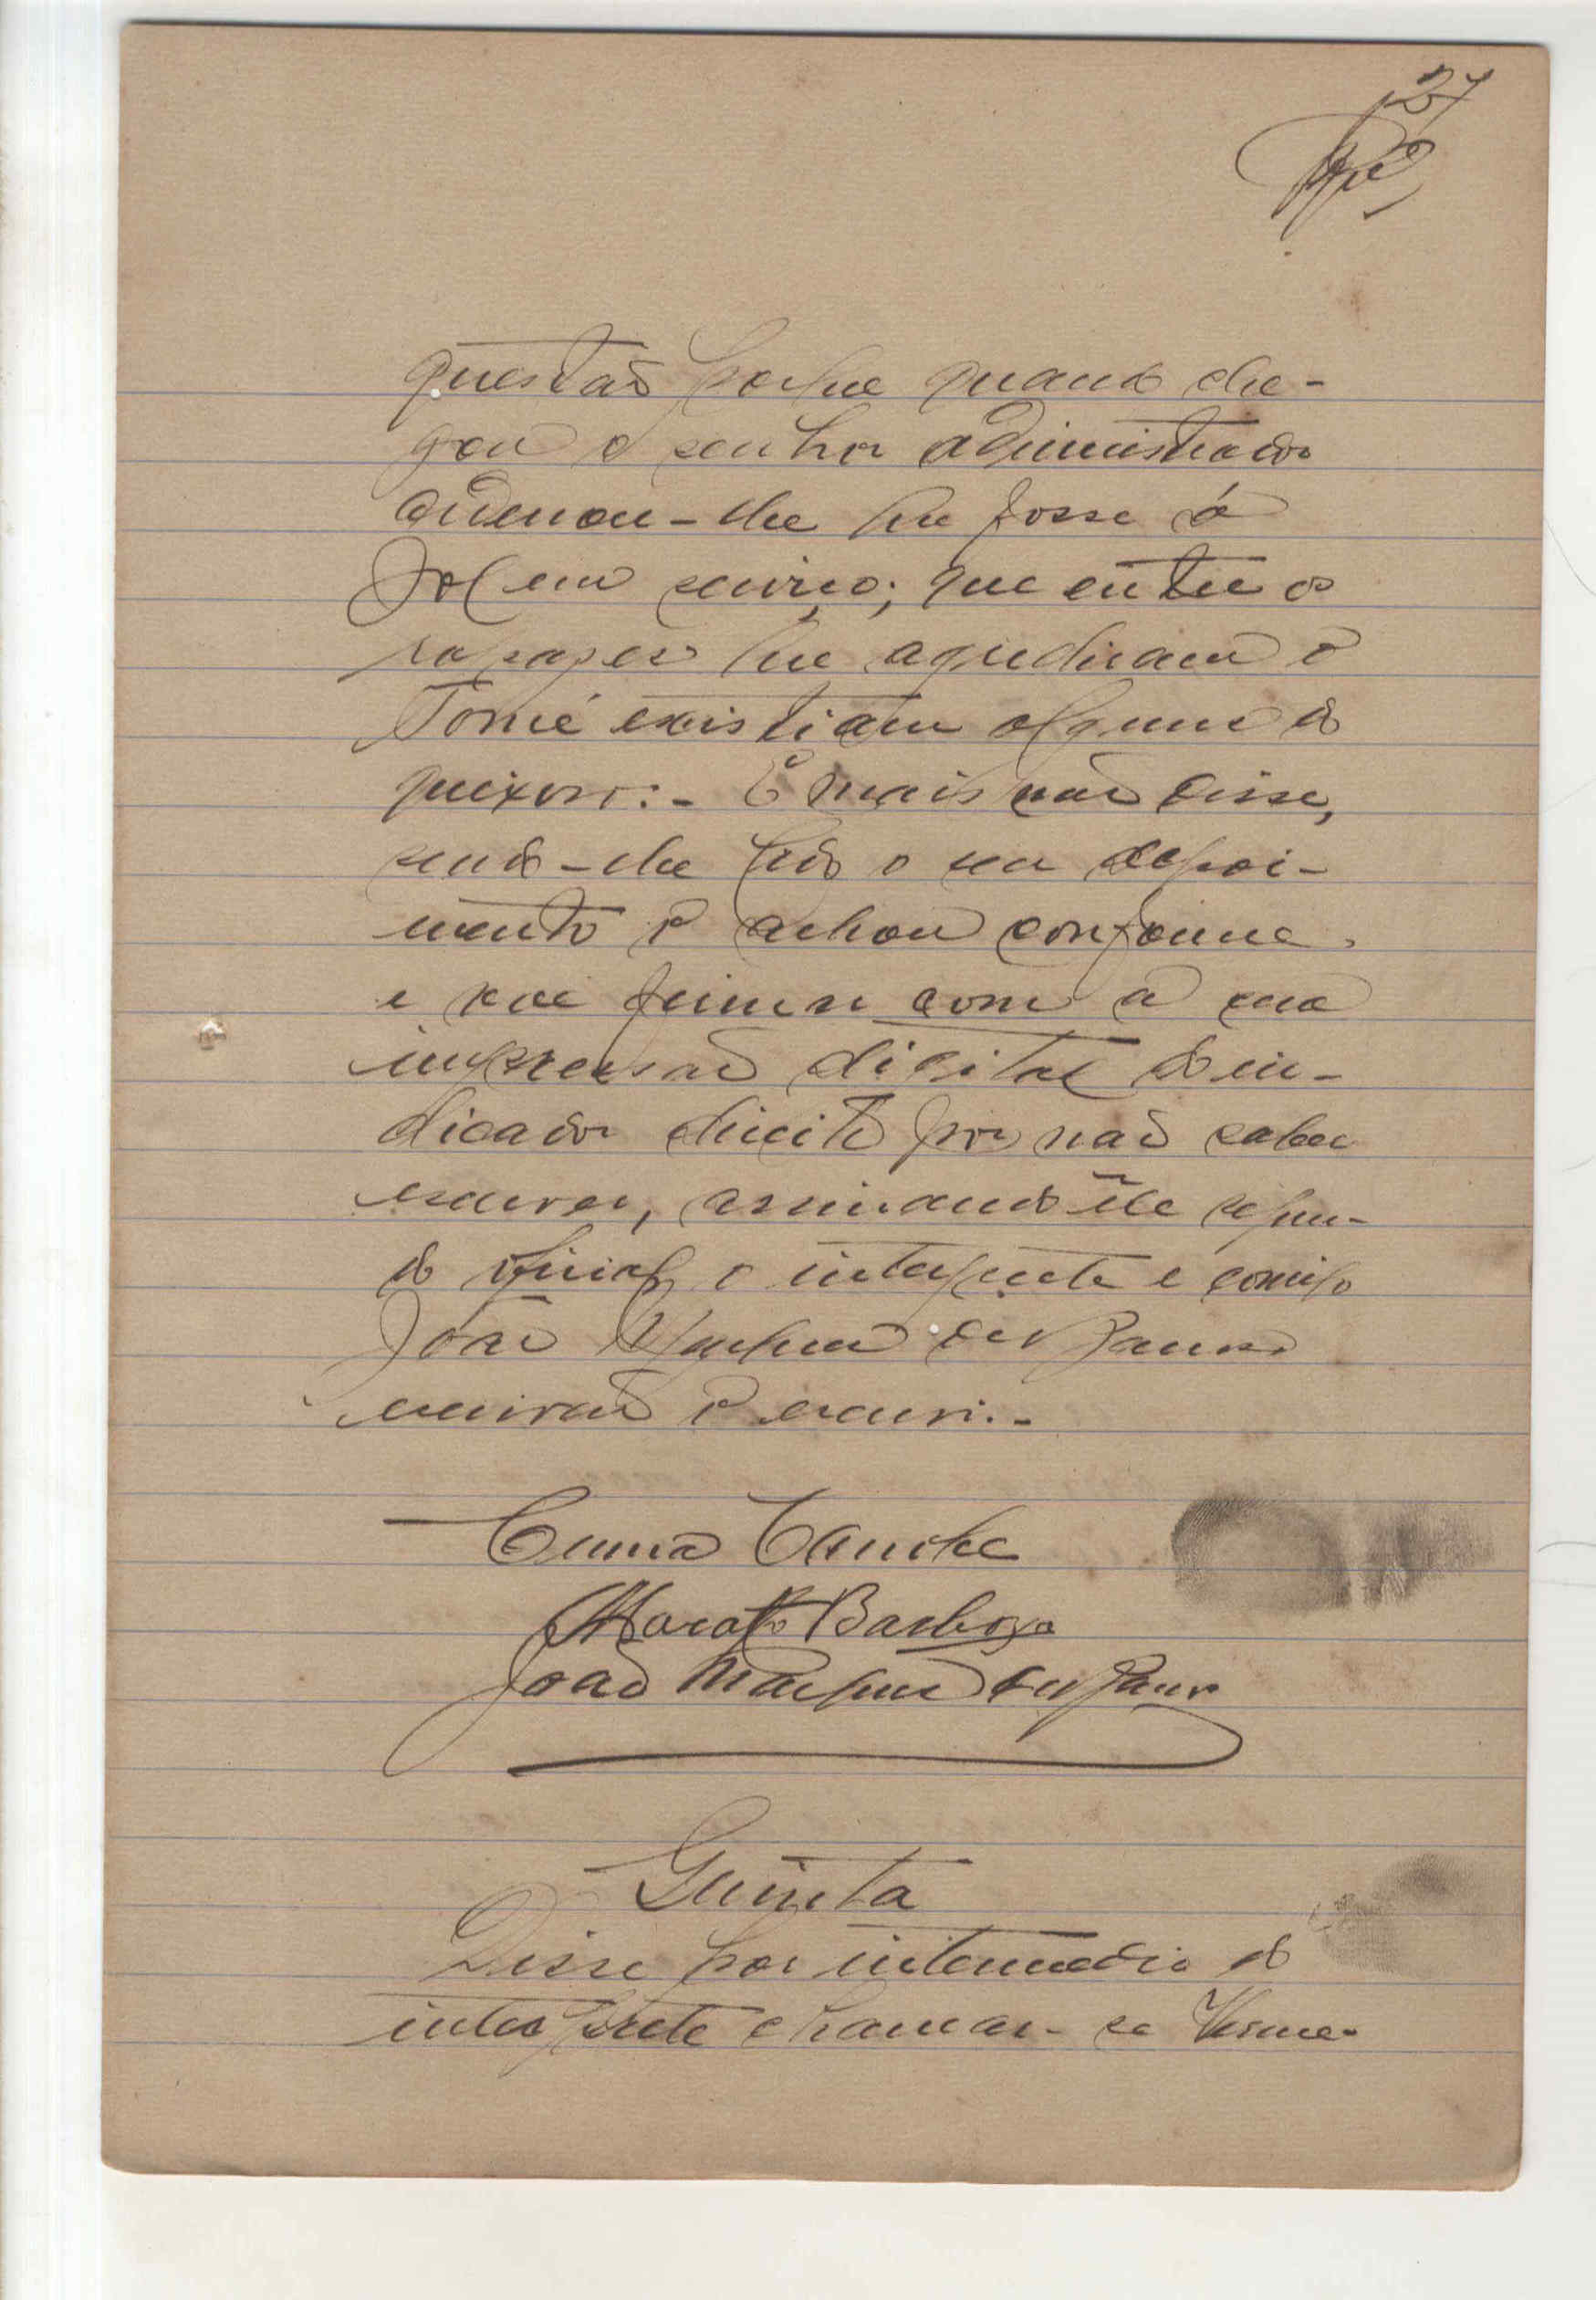 27
questão porque quando che-
gou o senhor administrador
ordenou-lhe que fosse á
em serviço; que entre os
rapazes que agrediram o
Tomé existiam alguns do
queixoso:- E mais não disse,
sendo-lhe lido o seu depoi-
mento o achou conforme.
e vai firmar com a sua
impressão digital do in-
dicador direito por não saber
escrever, assinando êle segun-
do oficial o interprete e comigo
João Marques
escrivão o escrevi.-
Barboza
João Marques
Quinta
Disse por intermedio do
interprete chamar-se